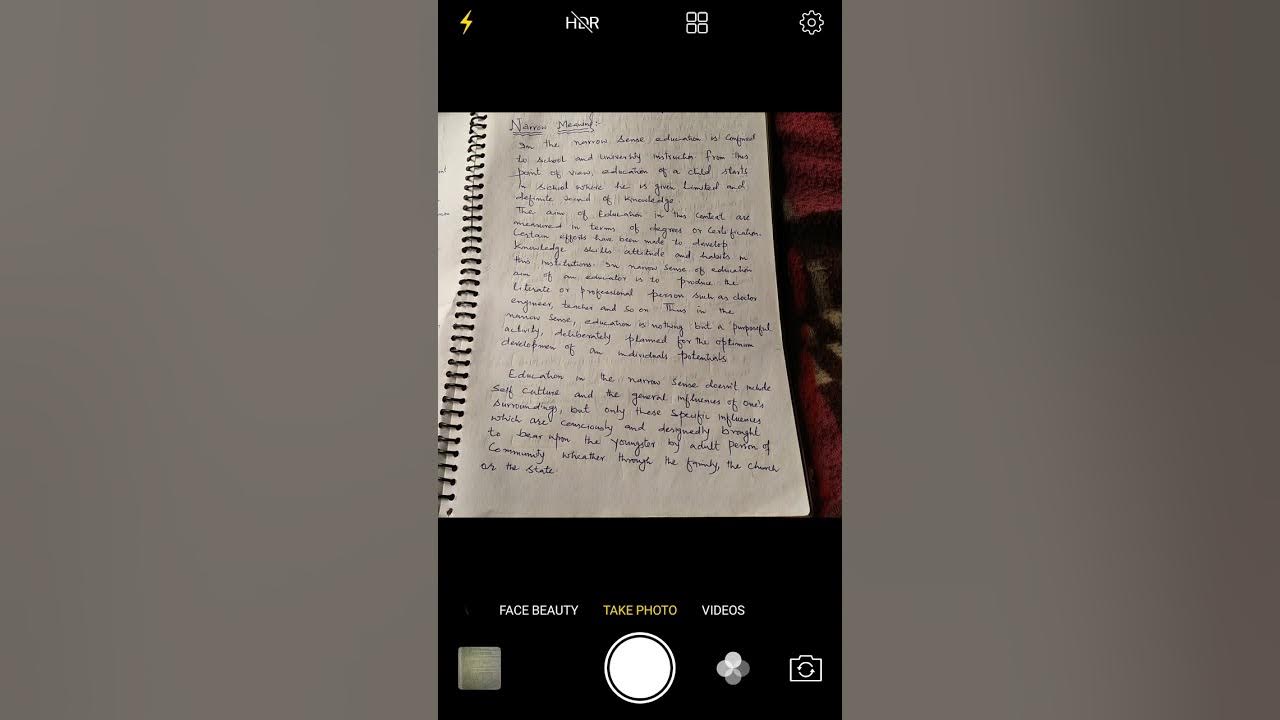 HDR
Narrow Meaning:-
In the narrow sense education is confined
to school and university instruction from this
point of view, education of a child starts
in school where he is given limited and
definite of knowledge
The aim of Education in this context are
measured in terms of degrees or certification.
Certain efforts have been made to develop
knowledge skills attitude and habits in
this institutions. In narrow sense of education
aim of an educator is to produce the
literate or professional person such as doctor
engineer, teacher and so on Thus in the
narrow sense, education is nothing but a purposeful
activity, deliberately planned for the optimum
development of an individuals potentials
Education in the narrow sense doesn't include
self culture and the general influences of one's
surroundings, but only those specific influences
which are consciously and designedly brought
to bear upon the youngster by adult person of
Community wheather through the family, the church
or the state.
FACE BEAUTY
TAKE PHOTO
VIDEOS